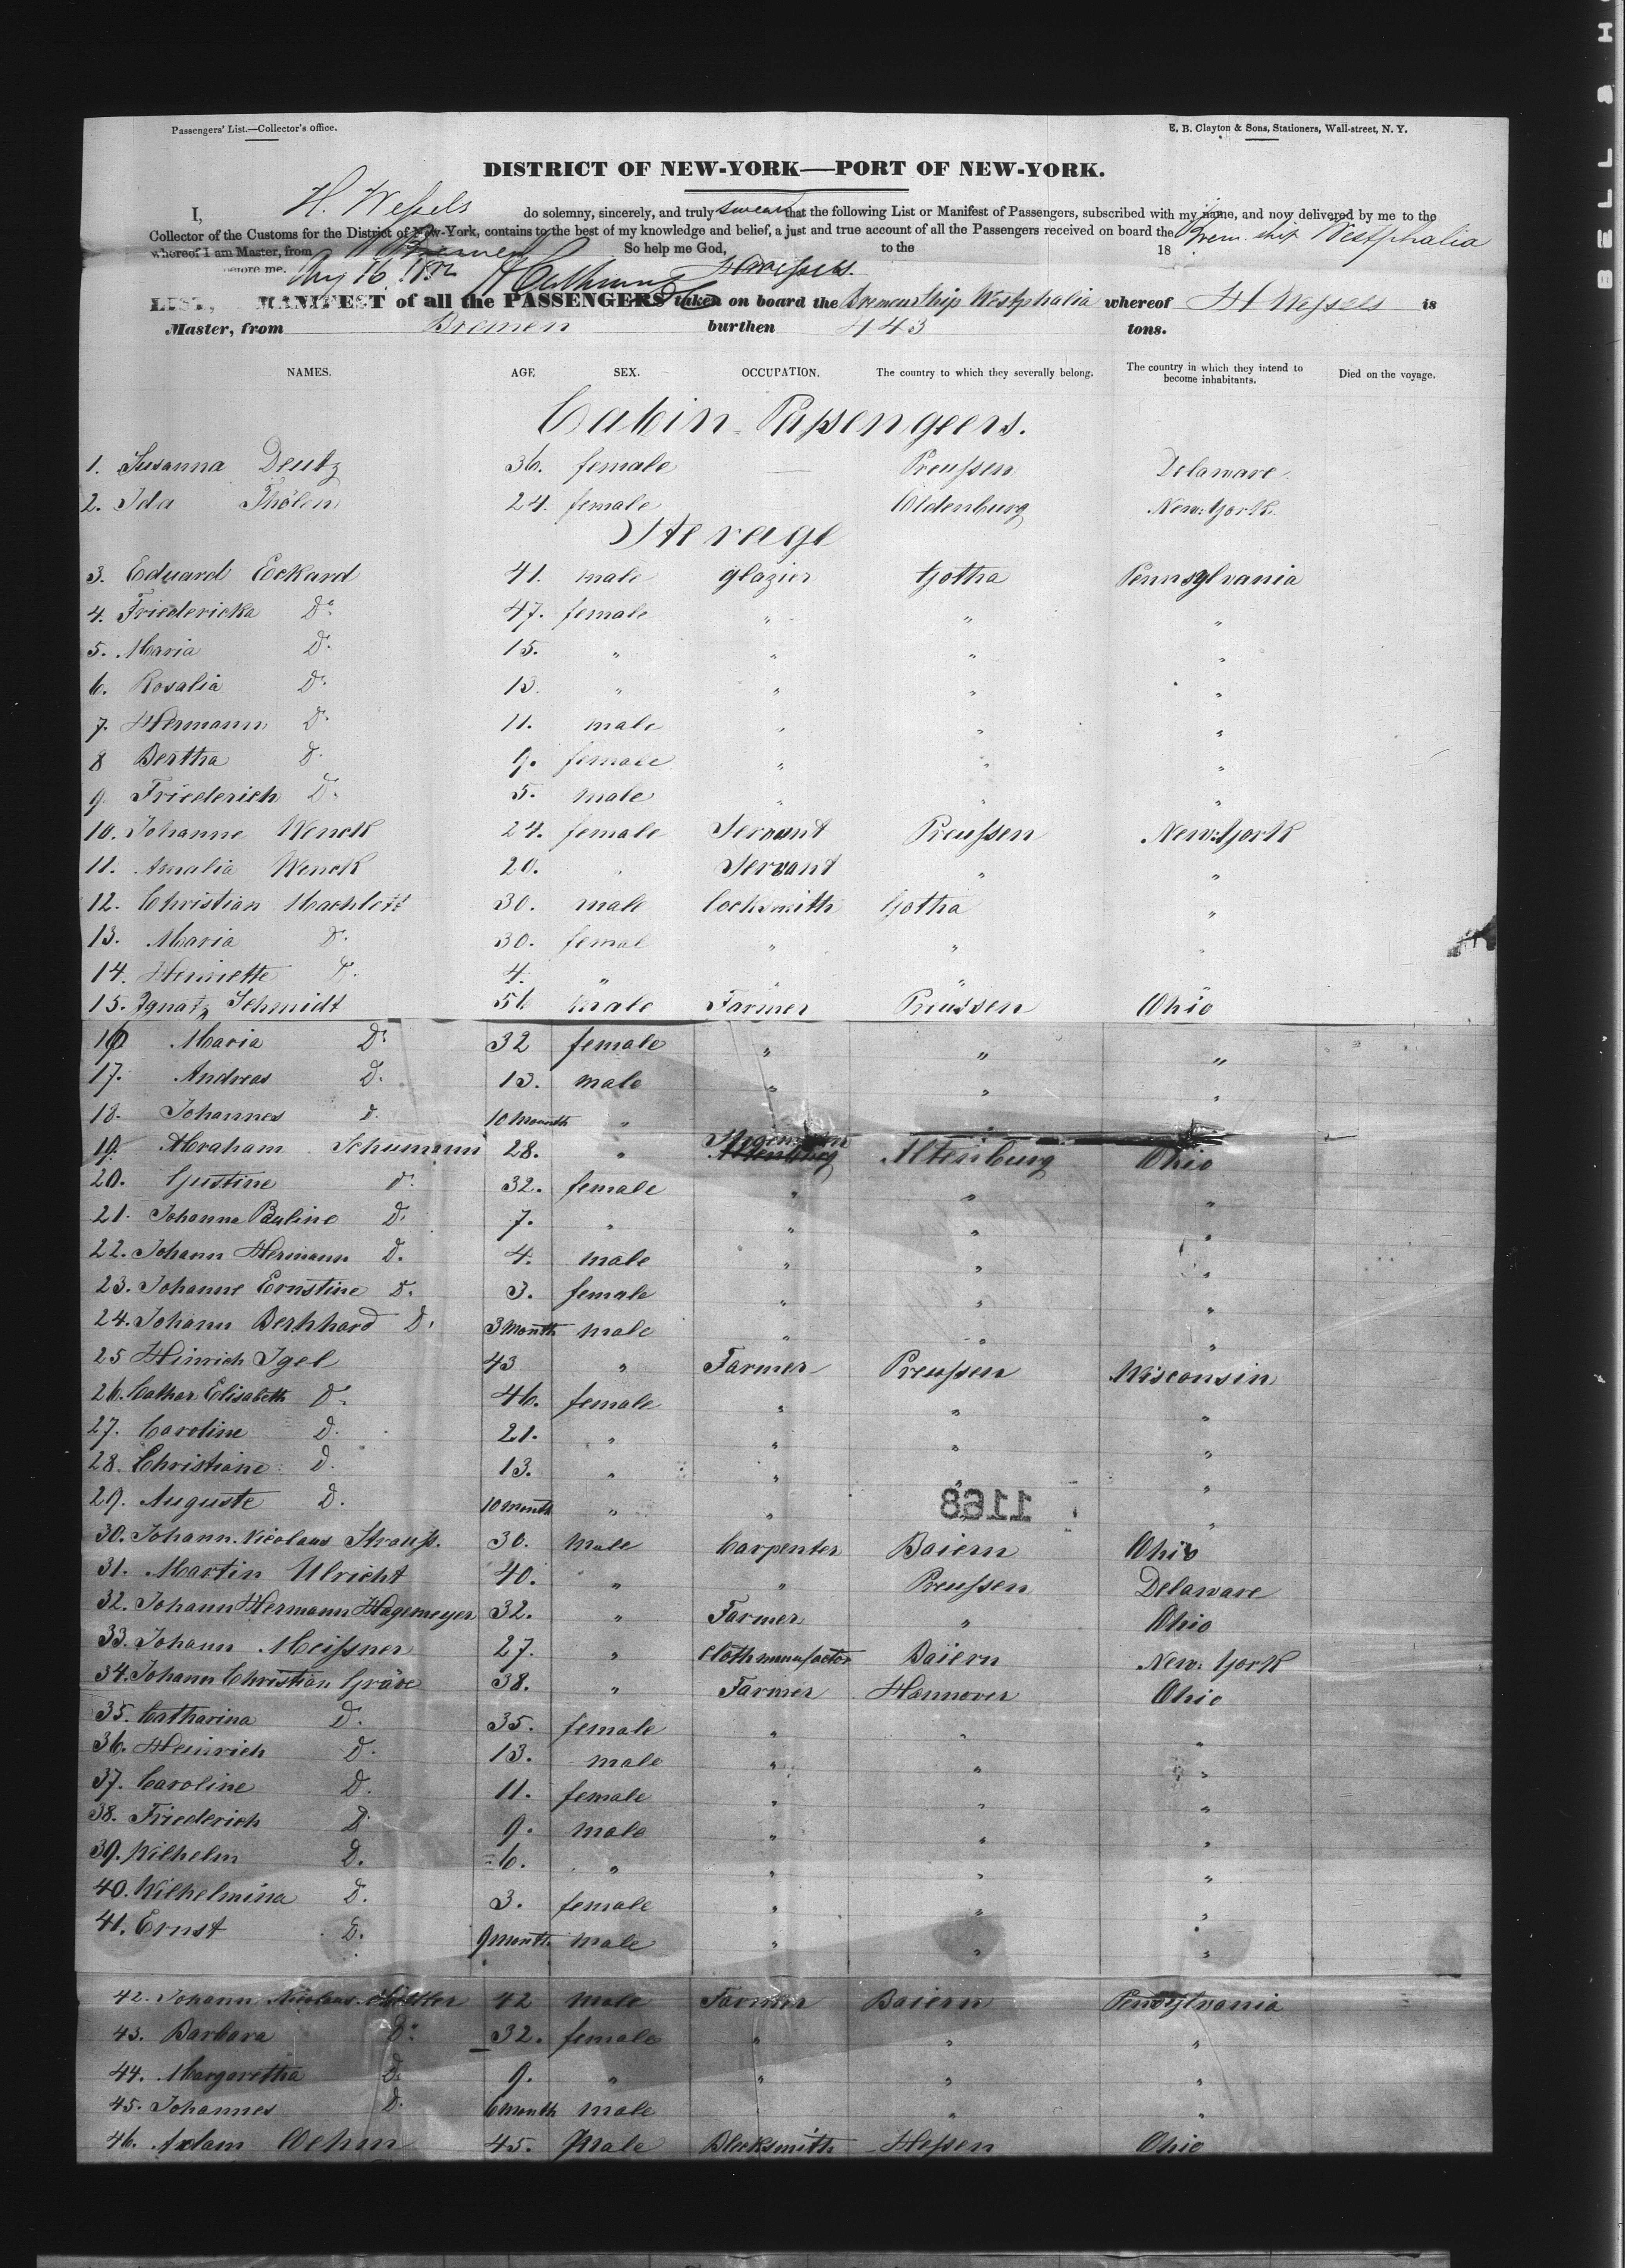 Passengers' List.—Collector's office.
E. B. Clayton & Sons, Stationers, Wall-street, N. Y.
DISTRICT OF NEW-YORK—PORT OF NEW-YORK.
I, H. Wessels do solemny, sincerely, and truly swear that the following List or Manifest of Passengers, subscribed with my name, and now delivered by me to the
Collector of the Customs for the District of New-York, contains to the best of my knowledge and belief, a just and true account of all the Passengers received on board the Brem. ship Westphalia
whereof I am Master, from Bremen So help me God, to the 18
before me. Aug 16. H Wessels.
LIST, MANIFEST of all the PASSENGERS taken on board the Bremen Ship Westphalia whereof H Wessels is
Master, from Bremen burthen 443 tons.
NAMES. AGE SEX. OCCUPATION. The country to which they severally belong. The country in which they intend to become inhabitants. Died on the voyage.
Cabin Passengeers.
1. Susanna Deutz 36. female — Preussen Delaware.
2. Ida Thölen 24. female Oldenburg New-York.
Sterage
3. Eduard Eckard 41. male glazier Gotha Pennsylvania
4. Friedericka Do 47. female " " "
5. Maria D. 15. " " " "
6. Rosalia D. 13. " " " "
7. Hermann D. 11. male " " "
8 Bertha D. 9. female " " "
9. Friederich D. 5. male " " "
10. Johanne Wenck 24. female Servant Preussen New-York
11. Amalia Wenck 20. " Servant " "
12. Christian 30. male Locksmith Gotha "
13. Maria D. 30. femal " " "
14. Henriette D. 4. " " "
15. Ignatz Schmidt 51. male Farmer Preussen Ohio
16 Maria D. 32 female " " "
17. Andreas D. 13. male " " "
18. Johannes d. 10 month " "
19. Abraham Schumann 28. " Altenburg Ohio
20. Gustine d. 32. female " " "
21. Johanna Pauline D. 7. " " " "
22. Johann Hermann D. 4. male " " "
23. Johanne Ernstine D. 3. female " " "
24. Johann Bernhard D. 3 month male " " "
25 Hinrich Igel 43 " Farmer Preussen Wisconsin
26. Cathar Elisabeth D. 46. female " " "
27. Caroline D. 21. " " " "
28. Christiane D. 13. " " " "
29. Auguste D. 10 month " " "
1168
30. Johann Nicolaus Strauss. 30. male Carpenter Baiern Ohio
31. Martin Ulricht 40. " " Preussen Delaware
32. Johann Hermann Hagemeyer 32. " Farmer " Ohio
33. Johann Meissner 27. " Clothmanufactor Baiern New-York
34. Johann Christian Gräve 38. " Farmer Hannover Ohio
35. Catharina D. 35. female " " "
36. Heinrich D. 13. male " " "
37. Caroline D. 11. female " " "
38. Friederich D. 9. male " " "
39. Wilhelm D. 6. " " " "
40. Wilhelmina D. 3. female " " "
41. Ernst D. 9 month male " " "
42. Johann Nicolaus 42 male Farmer Baiern Pensylvania
43. Barbara D. 32. female " " "
44. Margaretha D. 9. " " " "
45. Johannes D. 6 month male " "
46. Adam Oehm 45. Male Blecksmith Hessen Ohio
BELL & H